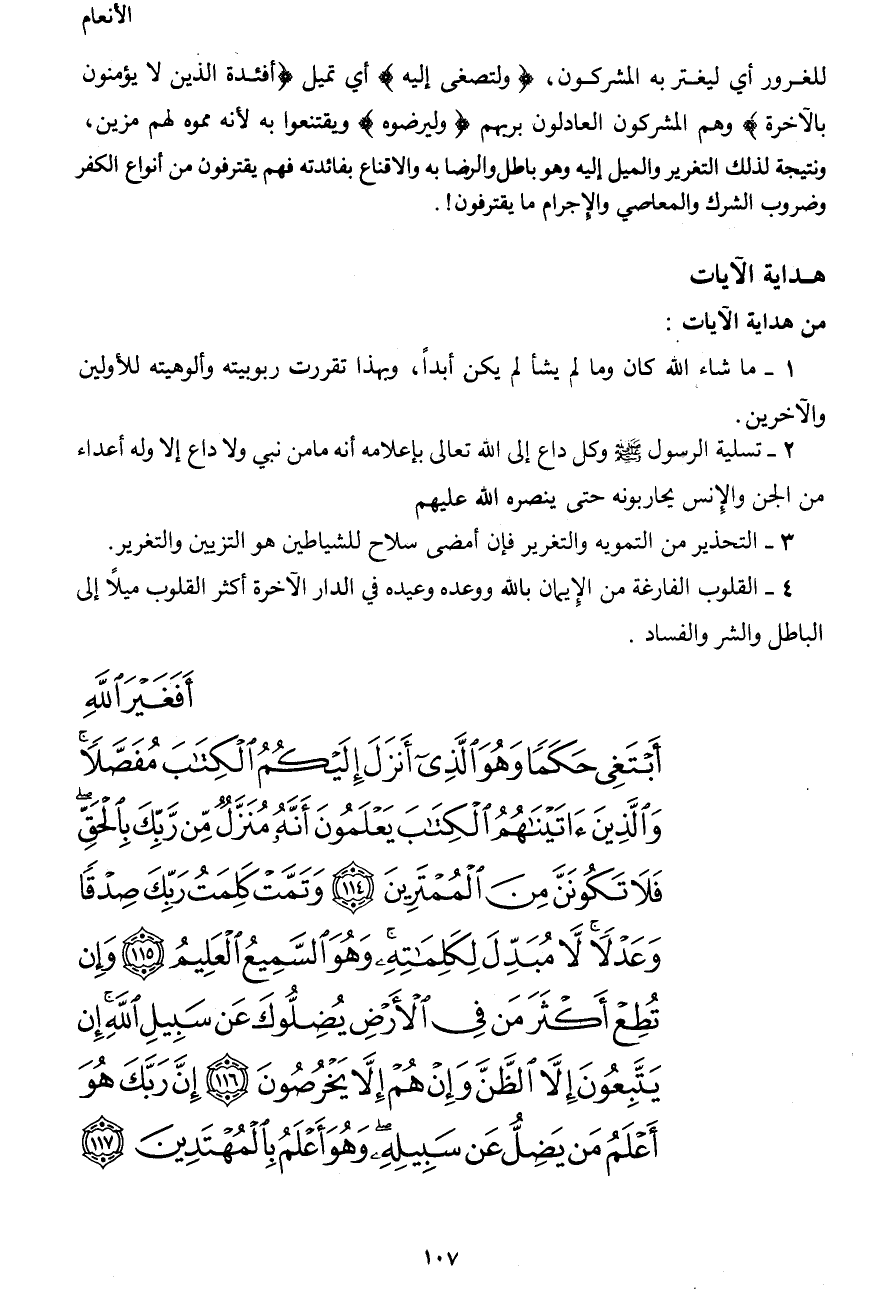 الأنعام
للغرور أي ليغتر به المشركون، ﴿ ولتصغى إليه ﴾ أي تميل ﴿أفئدة الذين لا يؤمنون
بالآخرة ﴾ وهم المشركون العادلون بربهم ﴿ وليرضوه ﴾ ويقتنعوا به لأنه مموه لهم مزين،
ونتيجة لذلك التغرير والميل إليه وهو باطل والرضا به والاقناع بفائدته فهم يقترفون من أنواع الكفر
وضروب الشرك والمعاصي والإجرام ما يقترفون! .
هداية الآيات
من هداية الآيات :
١ ـ ما شاء الله كان وما لم يشأ لم يكن أبداً، وبهذا تقررت ربوبيته وألوهيته للأولين
والآخرين.
٢ ـ تسلية الرسول ﷺ وكل داع إلى الله تعالى بإعلامه أنه مامن نبي ولا داع إلا وله أعداء
من الجن والإنس يحاربونه حتى ينصره الله عليهم
٣ ـ التحذير من التمويه والتغرير فإن أمضى سلاح للشياطين هو التزيين والتغرير.
٤ ـ القلوب الفارغة من الإيمان بالله ووعده وعيده في الدار الآخرة أكثر القلوب ميلاً إلى
الباطل والشر والفساد .
أَفَغَيْرَ ٱللَّهِ
أَبْتَغِى حَكَمًا وَهُوَ ٱلَّذِىٓ أَنزَلَ إِلَيْكُمُ ٱلْكِتَٰبَ مُفَصَّلًا ۚ
وَٱلَّذِينَ ءَاتَيْنَٰهُمُ ٱلْكِتَٰبَ يَعْلَمُونَ أَنَّهُۥ مُنَزَّلٌ مِّن رَّبِّكَ بِٱلْحَقِّ ۖ
فَلَا تَكُونَنَّ مِنَ ٱلْمُمْتَرِينَ ١١٤ وَتَمَّتْ كَلِمَتُ رَبِّكَ صِدْقًا
وَعَدْلًا ۚ لَّا مُبَدِّلَ لِكَلِمَٰتِهِۦ ۚ وَهُوَ ٱلسَّمِيعُ ٱلْعَلِيمُ ١١٥ وَإِن
تُطِعْ أَكْثَرَ مَن فِى ٱلْأَرْضِ يُضِلُّوكَ عَن سَبِيلِ ٱللَّهِ ۚ إِن
يَتَّبِعُونَ إِلَّا ٱلظَّنَّ وَإِنْ هُمْ إِلَّا يَخْرُصُونَ ١١٦ إِنَّ رَبَّكَ هُوَ
أَعْلَمُ مَن يَضِلُّ عَن سَبِيلِهِۦ ۖ وَهُوَ أَعْلَمُ بِٱلْمُهْتَدِينَ ١١٧
١٠٧